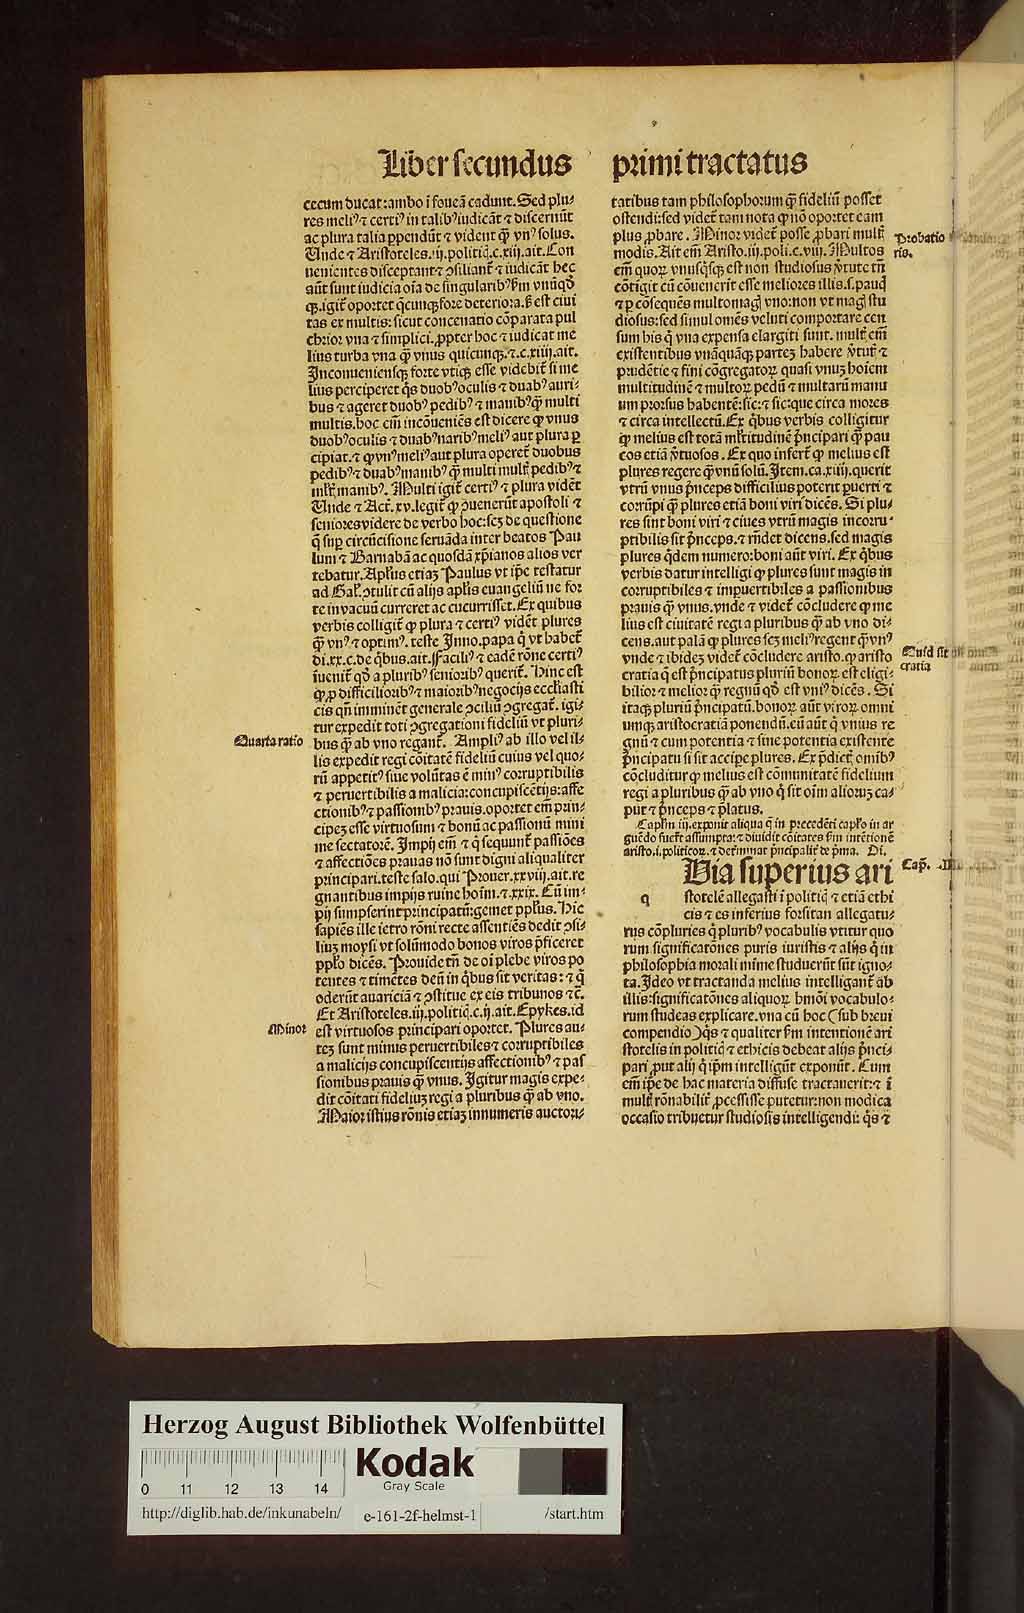 Liber secundus primi tractatus
cecum ducat: ambo ĩ foueã cadunt. Sed plu-
res meliꝰ ⁊ certiꝰ in talibꝰ iudicãt ⁊ discernũt
ac plura talia ꝑpendũt ⁊ vident ꝙ̃ vnꝰ solus.
Unde ⁊ Aristoteles .iij. politiq̃. c. xiij. ait. Con
uenientes disceptant ⁊ ꝯsiliant̃ ⁊ iudicãt hec
aũt sunt iudicia oĩa de singularibꝰ. Fm vnũqd̃
qꝫ. igit̃ oportet q̃cunqꝫ fore deteriora. s̃ est ciui
tas ex multis: sicut concenatio cõparata pul
chrior vna ⁊ simplici. ꝓpter hoc ⁊ iudicat me
lius turba vna ꝙ̃ vnus quicunqꝫ. ⁊. c. xiiij. ait.
Inconueniensqꝫ forte vtiqꝫ esse videbit̃ si me
lius perciperet q̃s duobꝰ oculis ⁊ duabꝰ auri-
bus ⁊ ageret duobꝰ pedibꝰ ⁊ manibꝰ ꝙ̃ multi
multis. hoc em̃ incõueniẽs est dicere ꝙ vnus
duobꝰ oculis ⁊ duabꝰ naribꝰ meliꝰ aut plura ꝑ
cipiat. ⁊ ꝙ vnꝰ meliꝰ aut plura operet̃ duobus
pedibꝰ ⁊ duabꝰ manibꝰ ꝙ̃ multi mult̃ pedibꝰ ⁊
mlt̃ manibꝰ. Multi igit̃ certiꝰ ⁊ plura vidẽt
Unde ⁊ Act̃. xv. legit̃ ꝙ ꝯuenerũt apostoli ⁊
seniores videre de verbo hoc: scꝫ de questione
q̃ suꝑ circũcisione seruãda inter beatos Pau
lum ⁊ Barnabã ac quosdã xp̃ianos alios ver
tebatur. Apl̃us etiaꝫ Paulus vt ip̃e testatur
ad Gal̃. ꝯtulit cũ alijs apl̃is euangeliũ ne for
te in vacuũ curreret ac cucurrisset. Ex quibus
verbis colligit̃ ꝙ plura ⁊ certiꝰ vidẽt plures
ꝙ̃ vnꝰ ⁊ optimꝰ. teste Inno. papa q̃ vt habet̃
di. xx. c. de q̃bus. ait. Faciliꝰ ⁊ eadẽ rõne certiꝰ
ĩuenit̃ qd̃ a pluribꝰ senioribꝰ querit̃. Hinc est
ꝙ ꝓ difficilioribꝰ ⁊ maioribꝰ negocijs eccl̃iasti
cis qn̄ imminẽt generale ꝯciliũ ꝯgregat̃. igi-
tur expedit toti ꝯgregationi fideliũ vt pluri-
Quarta ratio
bus ꝙ̃ ab vno regant̃. Ampliꝰ ab illo vel il-
lis expedit regi cõitatẽ fideliũ cuius vel quo-
rũ appetitꝰ siue volũtas ẽ minꝰ corruptibilis
⁊ peruertibilis a malicia: concupiscẽtijs: affe
ctionibꝰ ⁊ passionibꝰ prauis. oportet em̃ prin-
cipeꝫ esse virtuosum ⁊ bonũ ac passionũ mini
me sectatorẽ. Impij em̃ ⁊ q̃ sequunt̃ passiões
⁊ affectiões prauas nõ sunt digni aliqualiter
principari. teste salo. qui Prouer. xxviij. ait. re
gnantibus impijs ruine hoĩm. ⁊. xxix. Cũ im-
pij sumpserint principatũ: gemet ppl̃us. Hic
sapiẽs ille ietro rõni recte assentiẽs dedit ꝯsi-
liuꝫ moysi vt solũmodo bonos viros p̃ficeret
ppl̃o dicẽs. Prouide tñ de oĩ plebe viros po
tentes ⁊ timẽtes deũ in q̃bus sit veritas: ⁊ q̃
oderũt auariciã ⁊ ꝯstitue ex eis tribunos ⁊c̃.
Et Aristoteles. iij. politiq̃. c. ij. ait. Epykes. id
Minor
est virtuosos principari oportet. Plures au-
teꝫ sunt minus peruertibiles ⁊ corruptibiles
a malicijs concupiscentijs affectionibꝰ ⁊ pas
sionibus prauis ꝙ̃ vnus. Igitur magis expe-
dit cõitati fideliuꝫ regi a pluribus ꝙ̃ ab vno.
Maior istius rõnis etiaꝫ innumeris auctori-
tatibus tam philosophorum ꝙ̃ fideliũ posset
ostendi: sed videt̃ tam nota ꝙ nõ oportet eam
plus ꝓbare. Minor videt̃ posse ꝓbari mult̃
Probatio
ris.
modis. Ait em̃ Aristo. iij. poli. c. viij. Multos
em̃ quoꝝ vnusq̃sqꝫ est non studiosus v̓tute tñ
cõtigit cũ cõuenerit esse meliores illis. s. pauq̃
⁊ ꝑ cõsequẽs multomag̃ vno: non vt mag̃ stu
diosus: sed simul omẽs veluti comportare cen
sum his q̃ vna expensa elargiti sunt. mult̃ em̃
existentibus vnãquãqꝫ parteꝫ habere v̓tut̃ ⁊
prudẽtie ⁊ fini cõgregatoꝝ quasi vnuꝫ hoiem
multitudinẽ ⁊ multoꝝ pedũ ⁊ multarũ manu
um prorsus habentẽ: sic: ⁊ sic: que circa mores
⁊ circa intellectũ. Ex q̃bus verbis colligitur
ꝙ melius est totã ml̃titudinẽ p̃ncipari ꝙ̃ pau
cos etiã v̓tuosos. Ex quo infert̃ ꝙ melius est
plures regere ꝙ̃ vnũ solũ. Item. ca. xiiij. querit
vtrũ vnus p̃nceps difficilius poterit ꝑuerti ⁊
corrũpi ꝙ̃ plures etiã boni viri dicẽs. Si plu-
res sint boni viri ⁊ ciues vtrũ magis incorru-
ptibilis sit p̃nceps. ⁊ rñdet dicens. sed magis
plures q̃dem numero: boni aũt viri. Ex q̃bus
verbis datur intelligi ꝙ plures sunt magis in
corruptibiles ⁊ impuertibiles a passionibus
prauis ꝙ̃ vnus. vnde ⁊ videt̃ cõcludere ꝙ me
lius est ciuitatẽ regi a pluribus ꝙ̃ ab vno di-
cens. aut palã ꝙ plures scꝫ meliꝰ regent ꝙ̃ vnꝰ
Quid sit
cratia
vnde ⁊ ibideꝫ videt̃ cõcludere aristo. ꝙ aristo
cratia q̃ est p̃ncipatus pluriũ bonoꝝ est eligi-
bilior ⁊ melior ꝙ̃ regnũ qd̃ est vniꝰ dicẽs. Si
itaqꝫ pluriũ p̃ncipatũ. bonoꝝ aũt viroꝝ omni
umqꝫ aristocratiã ponendũ. eũ aũt q̃ vnius re
gnũ ⁊ cum potentia ⁊ sine potentia existente
p̃ncipatu si sit accipe plures. Ex p̃dict̃ omibꝰ
cõcluditur ꝙ melius est cõmunitatẽ fidelium
regi a pluribus ꝙ̃ ab vno q̃ sit oĩm aliorũꝫ ca-
put ⁊ p̃nceps ⁊ p̃latus.
Capl̃m iij. exponit aliqua q̃ in precedẽti capl̃o in ar
guẽdo fuer̃t assumpta: ⁊ diuidit cõitates ẜm intẽtionẽ
aristo. i. politicoꝝ. ⁊ determinat p̃ncipalit̃ de p̃ma. Di.
Cap̃.
q
Uia superius ari
stotelẽ allegasti ĩ politiq̃ ⁊ etiã ethi
cis ⁊ es inferius forsitan allegatu-
rus cõpluries q̃ pluribꝰ vocabulis vtitur quo
rum significatões puris iuristis ⁊ alijs q̃ in
philosophia morali mĩme studuerũt sũt igno-
ta. Ideo vt tractanda melius intelligant̃ ab
illis: significatões aliquoꝝ hmõi vocabulo-
rum studeas explicare. vna cũ hoc (sub breui
compendio) q̃s ⁊ qualiter ẜm intentionẽ ari
stotelis in politiq̃ ⁊ ethicis debeat alijs p̃nci-
pari ꝓut alij q̃ ip̃m intelligũt exponũt. Cum
em̃ ip̃e de hac materia diffuse tractauerit: ⁊ ĩ
mult̃ rõnabilit̃ ꝓcessisse putetur: non modica
occasio tribuetur studiosis intelligendi: q̃s ⁊
Herzog August Bibliothek Wolfenbüttel
0 11 12 13 14
Kodak
Gray Scale
http://diglib.hab.de/inkunabeln/ e-161-2f-helmst-1 /start.htm